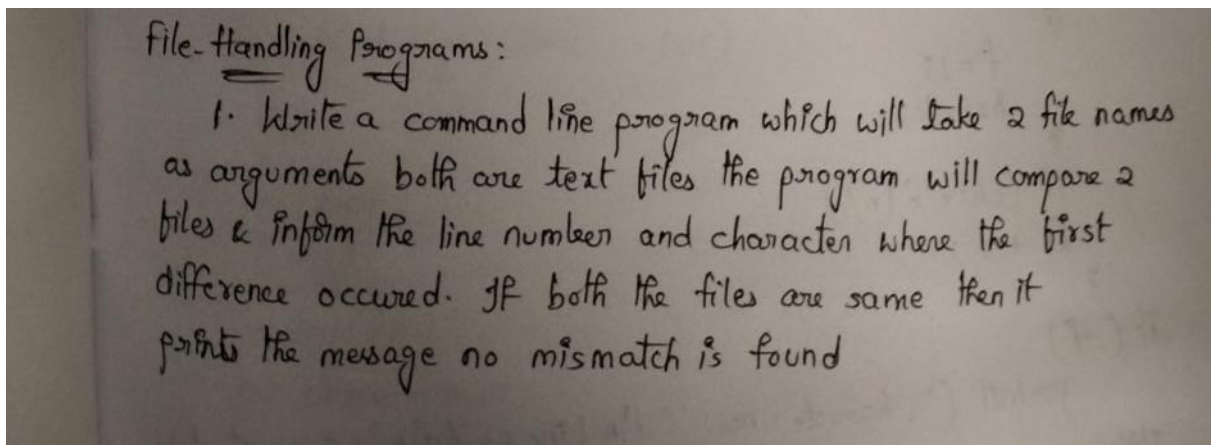 File-Handling Programs:
1. Write a command line program which will take 2 file names
as arguments both are text files the program will compare 2
files & inform the line number and character where the first
difference occured. If both the files are same then it
prints the message no mismatch is found